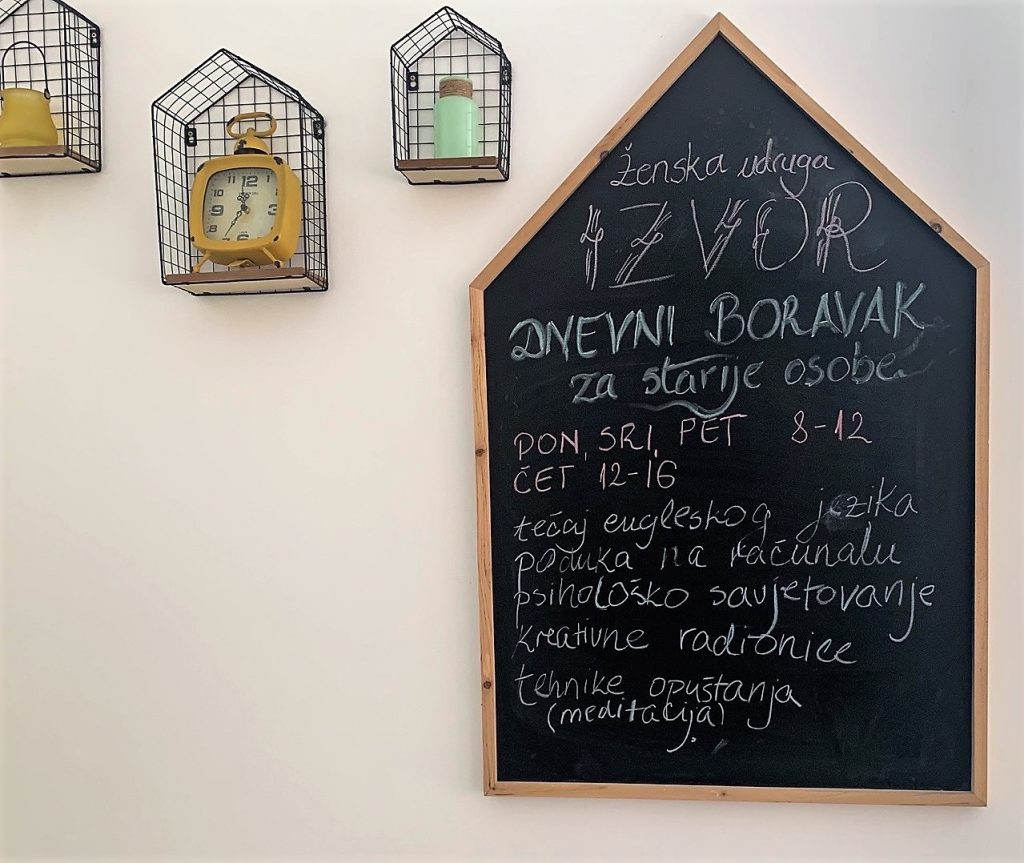 Ženska udruga
IZVOR
DNEVNI BORAVAK
za starije osobe
PON, SRI, PET 8-12
ČET 12-16
tečaj engleskog jezika
poduka na računalu
psihološko savjetovanje
kreativne radionice
tehnike opuštanja
(meditacija)